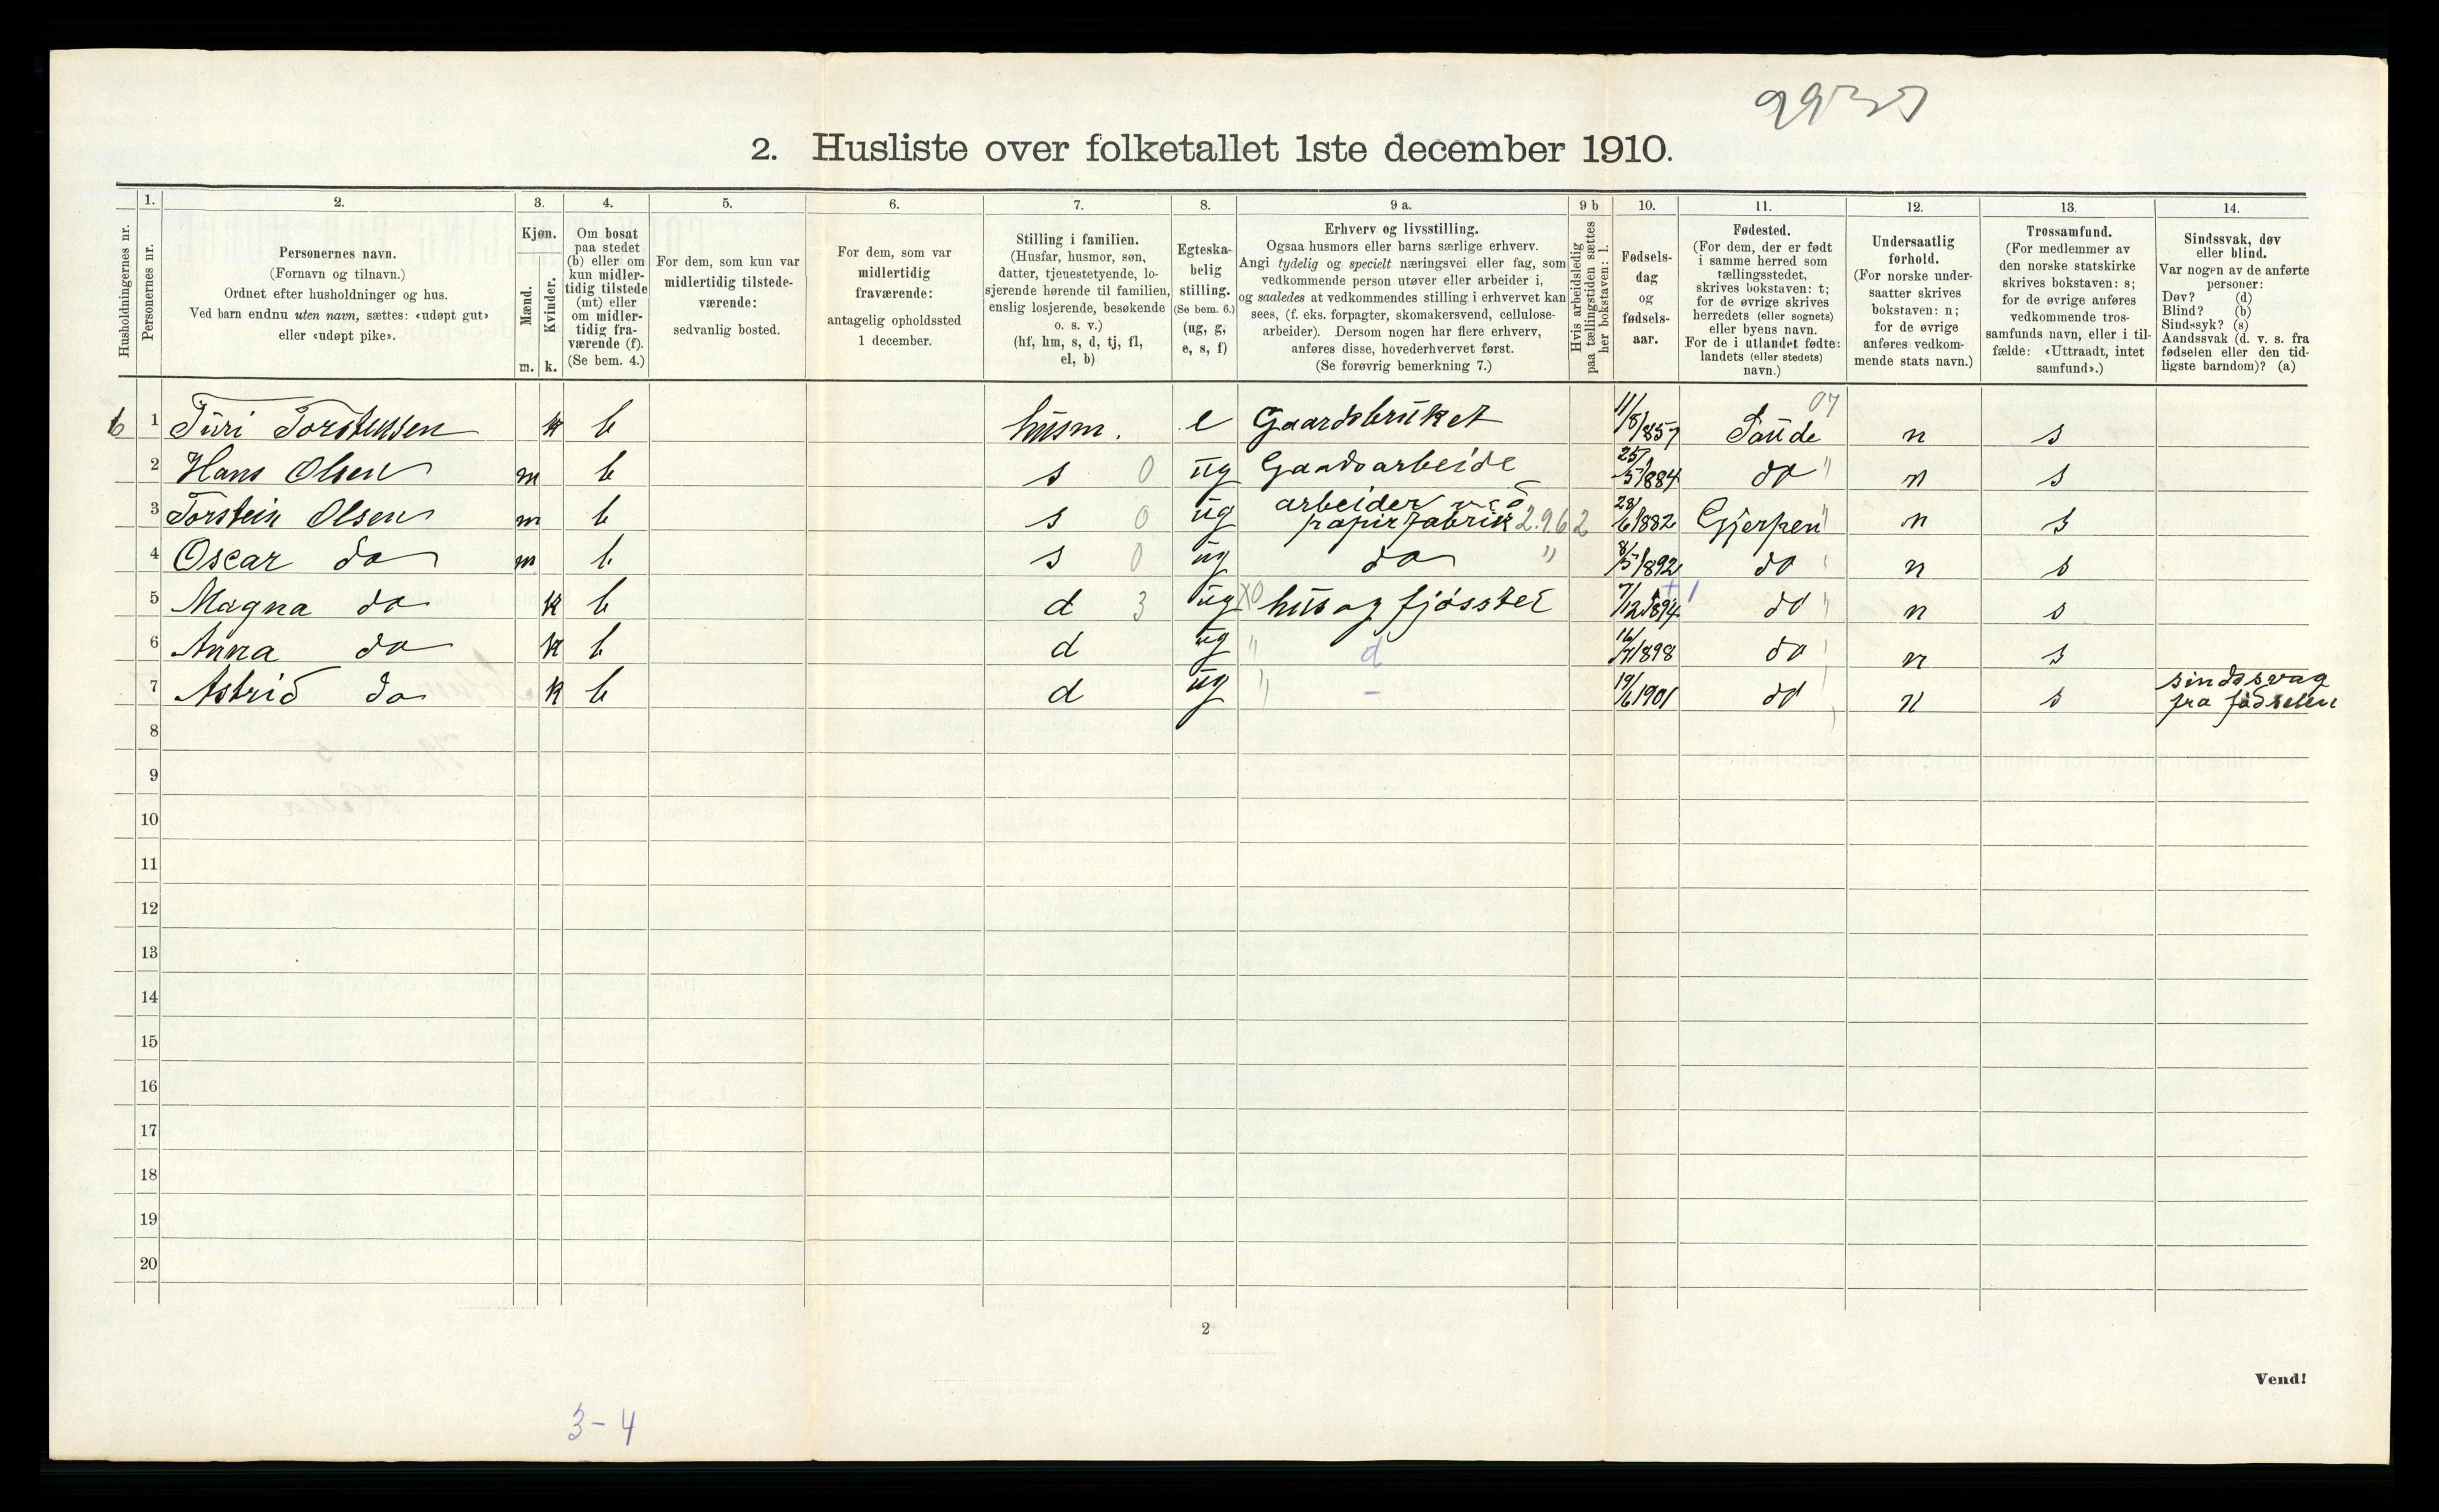 2. Husliste over folketallet 1ste december 1910.
Husholdningernes nr.
1.
Personernes nr.
2.
Personernes navn.
(Fornavn og tilnavn.)
Ordnet efter husholdninger og hus.
Ved barn endnu uten navn, sættes: «udøpt gut»
eller «udøpt pike».
3.
Kjøn.
Mænd.
Kvinder.
m. k.
4.
Om bosat
paa stedet
(b) eller om
kun midler-
tidig tilstede
(mt) eller
om midler-
tidig fra-
værende (f).
(Se bem. 4.)
5.
For dem, som kun var
midlertidig tilstede-
værende:
sedvanlig bosted.
6.
For dem, som var
midlertidig
fraværende:
antagelig opholdssted
1 december.
7.
Stilling i familien.
(Husfar, husmor, søn,
datter, tjenestetyende, lo-
sjerende hørende til familien,
enslig losjerende, besøkende
o. s. v.)
(hf, hm, s, d, tj, fl,
el, b)
8.
Egteska-
belig
stilling.
(Se bem. 6.)
(ug, g,
e, s, f)
9 a.
Erhverv og livsstilling.
Ogsaa husmors eller barns særlige erhverv.
Angi tydelig og specielt næringsvei eller fag, som
vedkommende person utøver eller arbeider i,
og saaledes at vedkommendes stilling i erhvervet kan
sees, (f. eks. forpagter, skomakersvend, cellulose-
arbeider). Dersom nogen har flere erhverv,
anføres disse, hovederhvervet først.
(Se forøvrig bemerkning 7.)
9 b
Hvis arbeidsledig
paa tællingstiden sættes
her bokstaven: l.
10.
Fødsels-
dag
og
fødsels-
aar.
11.
Fødested.
(For dem, der er født
i samme herred som
tællingsstedet,
skrives bokstaven: t;
for de øvrige skrives
herredets (eller sognets)
eller byens navn.
For de i utlandet fødte:
landets (eller stedets)
navn.)
12.
Undersaatlig
forhold.
(For norske under-
saatter skrives
bokstaven: n;
for de øvrige
anføres vedkom-
mende stats navn.)
13.
Trossamfund.
(For medlemmer av
den norske statskirke
skrives bokstaven: s;
for de øvrige anføres
vedkommende tros-
samfunds navn, eller i til-
fælde: «Uttraadt, intet
samfund».)
14.
Sindssvak, døv
eller blind.
Var nogen av de anførte
personer:
Døv? (d)
Blind? (b)
Sindssyk? (s)
Aandssvak (d. v. s. fra
fødselen eller den tid-
ligste barndom)? (a)
1 Turi Torstensen k b husm. e Gaardsbruket 11/8/857 Saude 07 n s
2 Hans Olsen m b s 0 ug Gaardsarbeide 25/5 1884 do " n s
3 Torstein Olsen m b s 0 ug arbeider ved
papirfabrik 2.962 28/6 1882 Gjerpen " n s
4 Oscar do m b s 0 ug do " 8/5 1892 do n s
5 Magna do k b d 3 ug X0 hus og fjösstel 7/12 1894 do " n s
6 Anna do k b d ug " d 16/7 1898 do n s
7 Astrid do k b d ug " – 19/6 1901 do n s sindssvag
fra fødselen
8
9
10
11
12
13
14
15
16
17
18
19
20
2
Vend!
3-4